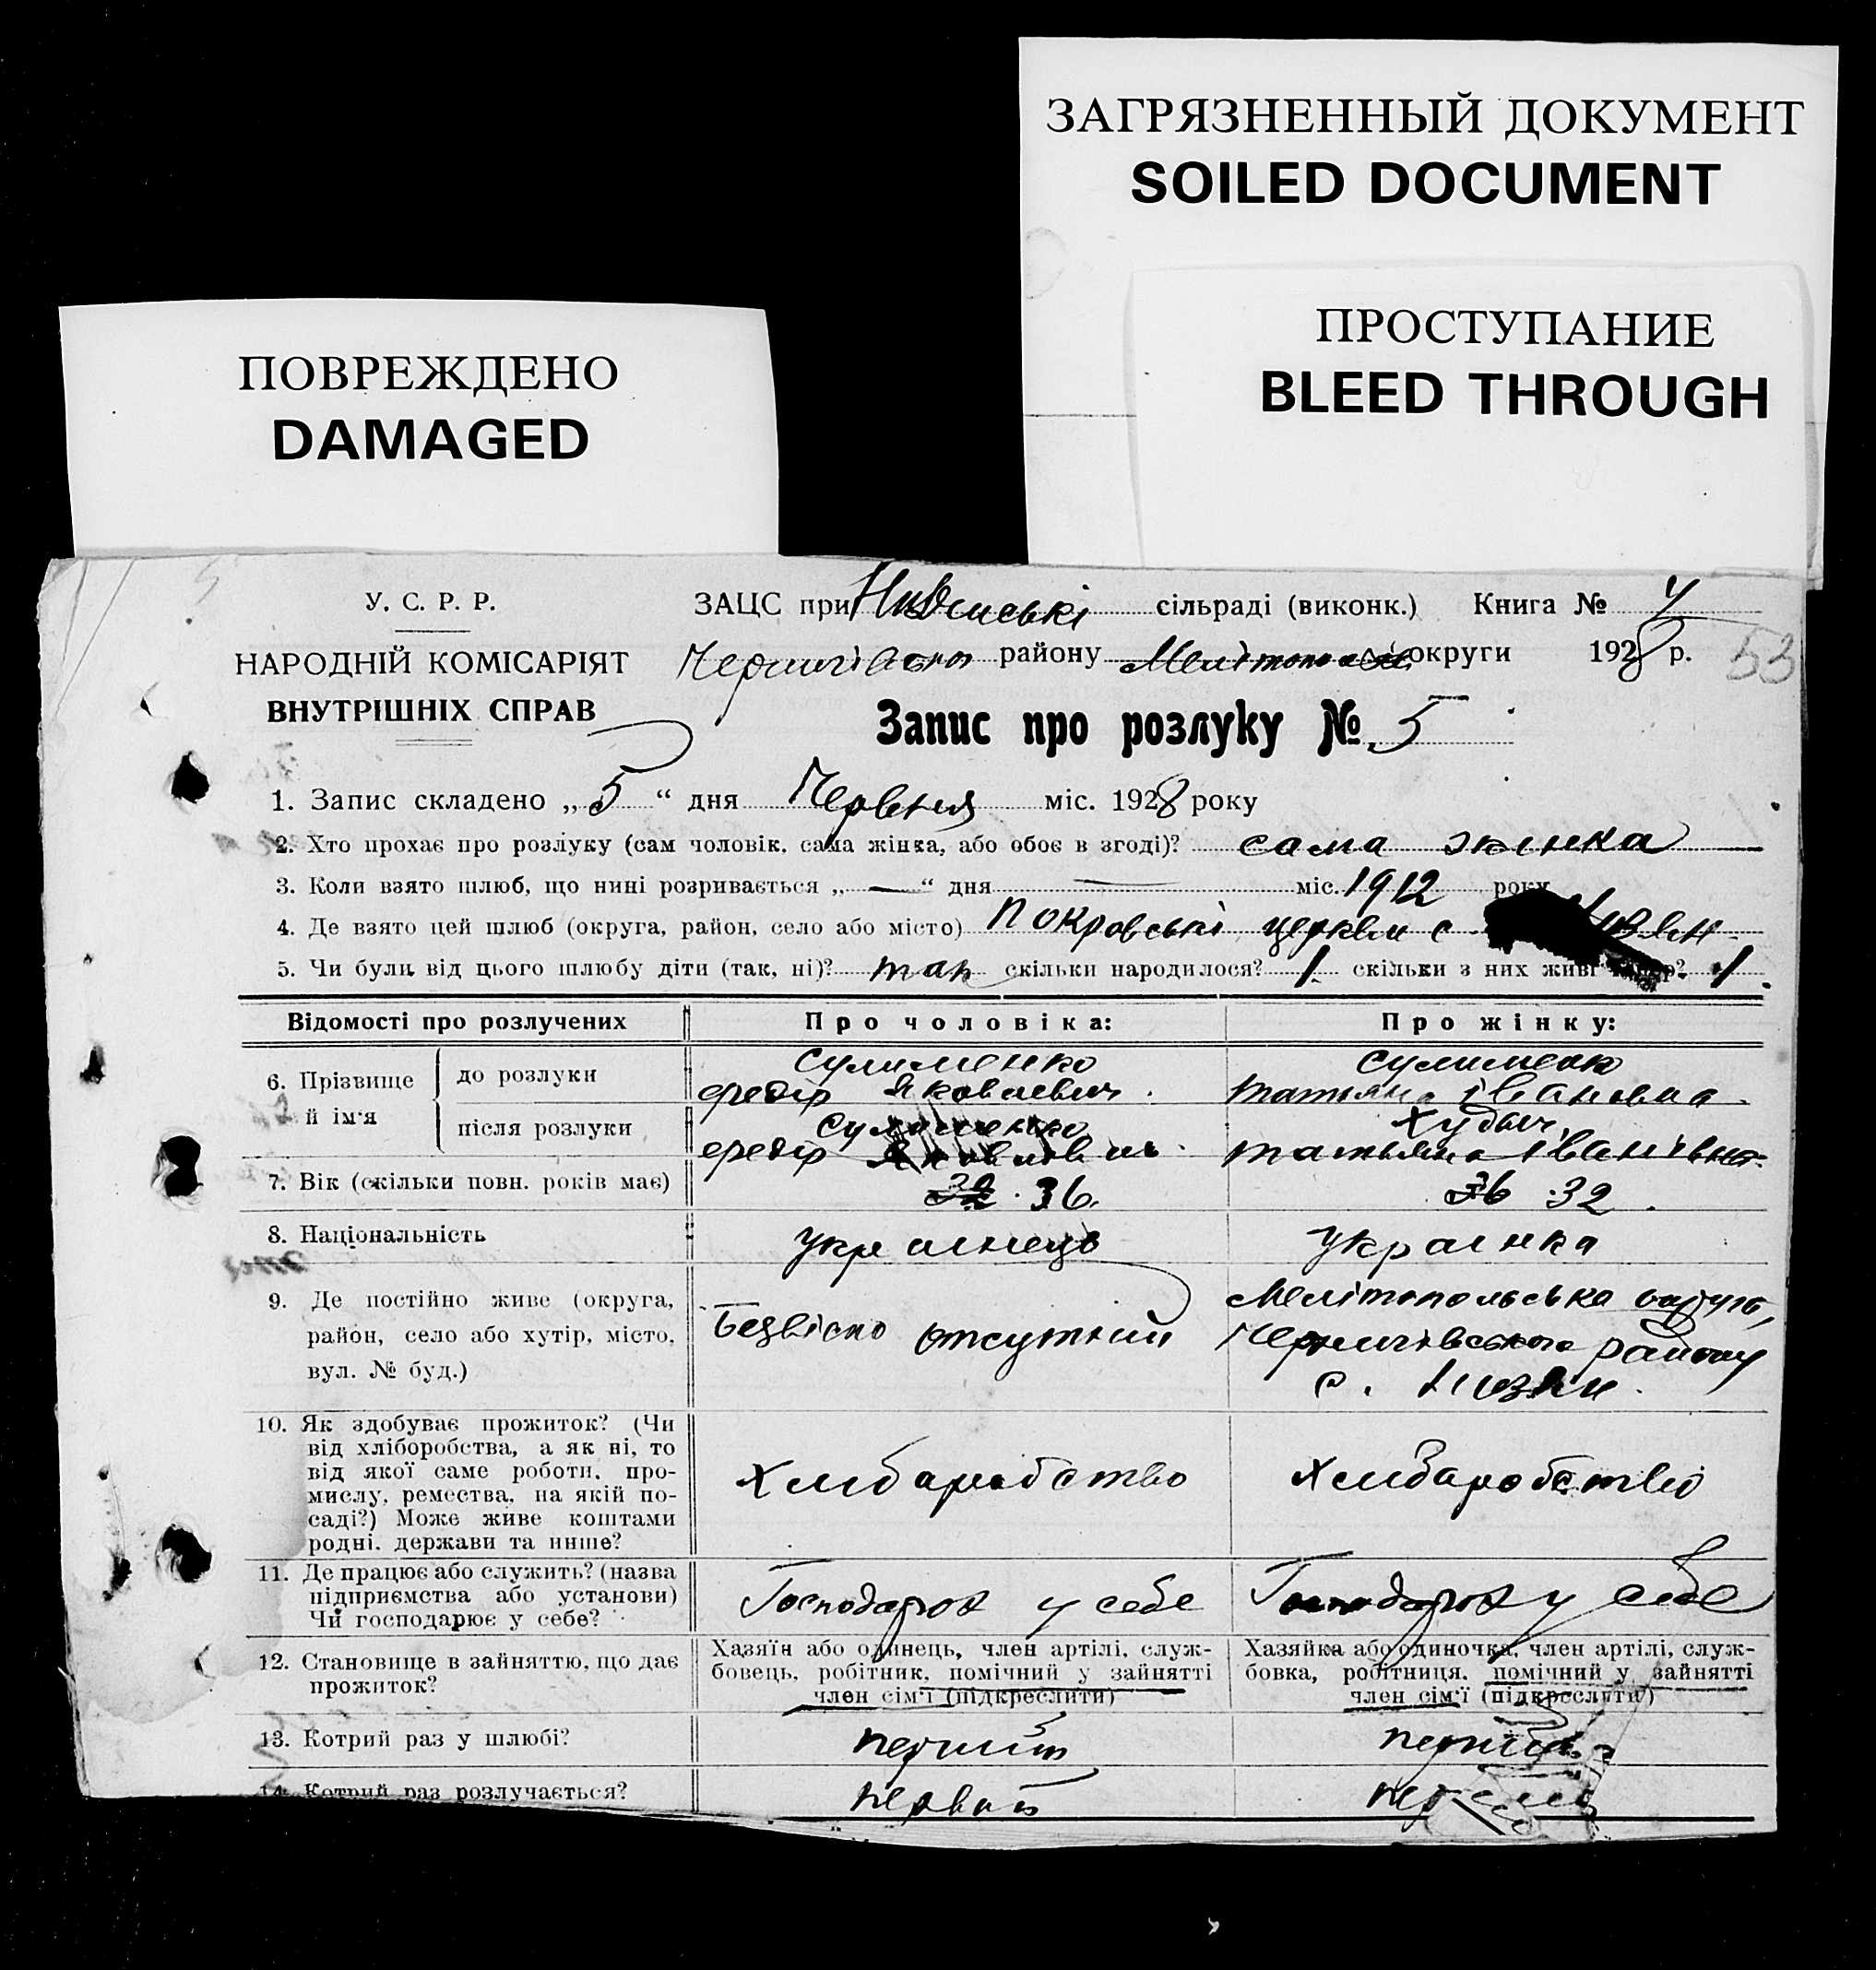 ЗАГРЯЗНЕННЫЙ ДОКУМЕНТ
SOILED DOCUMENT
ПРОСТУПАНИЕ
BLEED THROUGH
ПОВРЕЖДЕНО
DAMAGED
У. С. Р. Р.
НАРОДНІЙ КОМІСАРІЯТ
ВНУТРІШНІХ СПРАВ
ЗАЦС при сільраді (виконк.) Книга №
району округи 1928 р. 53
Запис про розлуку № 5
1. Запис складено „ 5 “ дня Червня міс. 1928 року
2. Хто прохає про розлуку (сам чоловік, сама жінка, або обоє в згоді)? сама жінка
3. Коли взято шлюб, що нині розривається „ — “ дня — міс. 1912 року
4. Де взято цей шлюб (округа, район, село або місто) Покровські церкви с
5. Чи були від цього шлюбу діти (так, ні)? так скільки народилося? 1 скільки з них живі 1.
Відомості про розлучених
Про чоловіка:
Про жінку:
6. Прізвище й ім'я
до розлуки
Сулименко
Федір Яковлевич.
Сулименко
Татьяна Івановна.
після розлуки
Сулименко
Федір
Худыч
Татьяна Іванівна.
7. Вік (скільки повн. років має)
32 . 36.
36 . 32.
8. Національність
українець
українка
9. Де постійно живе (округа,
район, село або хутір, місто,
вул. № буд.)
Безвісно отсутний
Мелітопольська округа,
Чернигівського району
с.
10. Як здобуває прожиток? (Чи
від хліборобства, а як ні, то
від якої саме роботи, про-
мислу, ремества, на якій по-
саді?) Може живе коштами
родні, держави та инше?
Хлибаробство
Хлибаробство
11. Де працює або служить? (назва
підприємства або установи)
Чи господарює у себе?
Господарює у себе
Господарює у себе
12. Становище в зайняттю, що дає
прожиток?
Хазяїн або одинець, член артілі, служ-
бовець, робітник, помічний у зайнятті
член сім'ї (підкреслити)
Хазяйка або одиночка, член артілі, служ-
бовка, робітниця, помічний у зайнятті
член сім'ї (підкреслити)
13. Котрий раз у шлюбі?
первий
14. Котрий раз розлучається?
первий